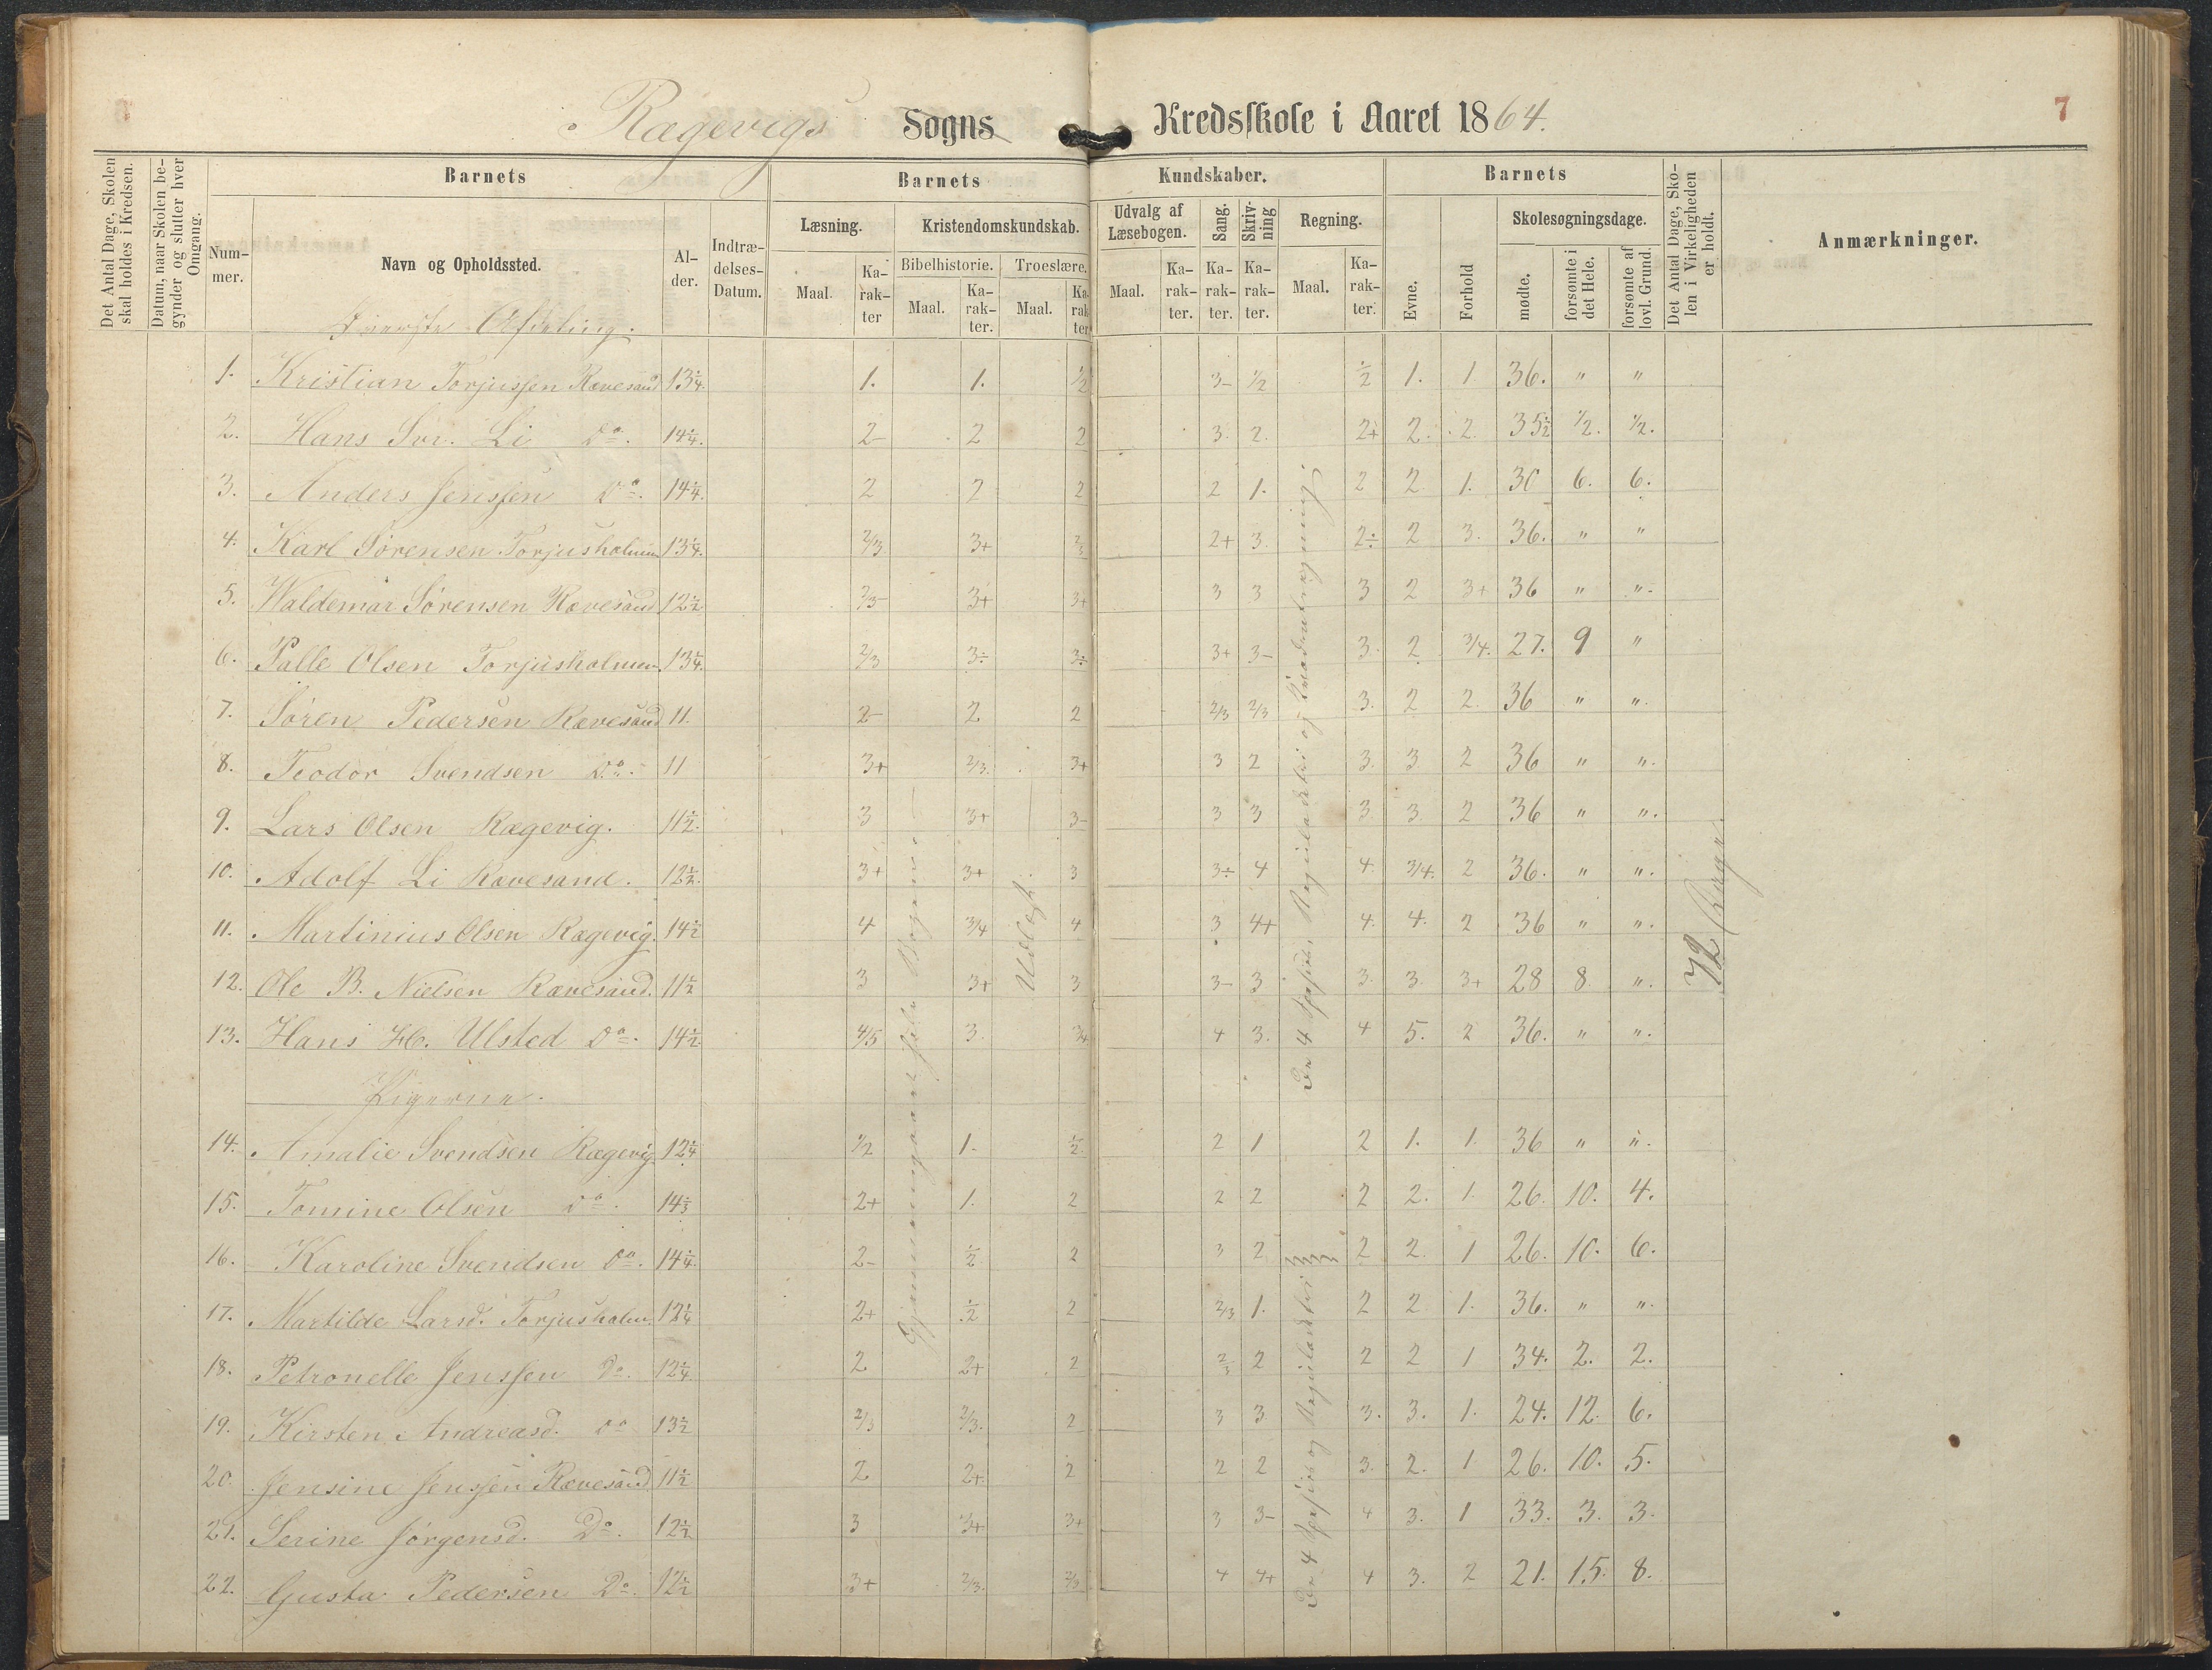 Rægevigs Sogns Kredsskole i Aaret 1864.
7
Det Antal Dage, Skolen skal holdes i Kredsen.
Datum, naar Skolen begynder og slutter hver Omgang.
Barnets
Nummer.
Navn og Opholdssted.
Alder.
Indtrædelses-Datum.
Barnets Kundskaber.
Læsning.
Maal.
Karakter
Kristendomskundskab.
Bibelhistorie.
Maal.
Karakter.
Troeslære.
Maal.
Karakter
Udvalg af Læsebogen.
Maal.
Karakter.
Sang.
Karakter.
Skrivning
Karakter.
Regning.
Maal.
Karakter.
Barnets
Evne.
Forhold
Skolesøgningsdage.
mødte.
forsømte i det Hele.
forsømte af lovl. Grund.
Det Antal Dage, Skolen i Virkeligheden er holdt.
Anmærkninger.
Øverste Afdeling.
1. Kristian Torjussen Rævesand 13 1/4. 1. 1. 1/2 3- 1/2 1/2 1. 1 36. " "
2. Hans Svr. Li Do. 14 1/4. 2- 2 2 3. 2. 2+ 2. 2. 35 1/2 1/2. 1/2.
3. Anders Jenssen Do. 14 1/4. 2 2 2 2 1. 2 2 1. 30 6. 6.
4. Karl Sørensen Torjusholmen 13 1/4. 2/3 3+ 2/3 2+ 3. 2÷ 2 3. 36. " "
5. Waldemar Sørensen Rævesand 12 1/2 2/3- 3+ 3+ 3 3 3 2 3+ 36 " "
6. Palle Olsen Torjusholmen 13 1/4. 2/3 3÷ 3÷ 3+ 3- 3. 2 3/4. 27. 9 "
7. Søren Pedersen Rævesand 11. 2- 2 2 2/3 2/3 3. 2 2. 36 " "
8. Teodor Svendsen Do. 11 3+ 2/3. 3+ 3 2 3. 3 2 36 " "
9. Lars Olsen Rægevig. 11 1/2. 3 3+ 3- 3 3 3 3 2 36 " "
10. Adolf Li Rævesand. 12 1/2. 3+ 3+ 3 3÷ 4 4. 3/4. 2 36. " "
11. Martinius Olsen Rægevig. 14 1/2 4 3/4 4 3 4+ 4. 4. 2 36 " "
12. Ole B. Nielsen Rævesand. 11 1/2 3 3+ 3 3- 3 3. 3. 3+ 28 8 "
13. Hans H. Ulsted Do. 14 1/2 4/5 3. 3/4 4 3. 4 5. 2 36. " "
Pigerne.
14. Amalie Svendsen Rægevig 12 1/4 1/2 1. 1/2 2 1 2 1. 1. 36 " "
15. Tomine Olsen Do. 14 1/3 2+ 1. 2 2 2 2 2. 1. 26. 10. 4.
16. Karoline Svendsen Do. 14 1/4. 2- 1/2 2 3 2 2 2. 1 26. 10. 6.
17. Martilde Larsd. Torjusholm. 12 1/4 2+ 1/2 2 2/3 1. 2 2 1. 36. " "
18. Petronelle Jenssen Do. 12 1/4. 2 2+ 2 2/3 2 2 2 1 34. 2. 2.
19. Kirsten Andreasd. Do 13 1/2 2/3 2/3. 2 3 3 3. 3. 1. 24. 12. 6.
20. Jensine Jenssen Rævesand 11 1/2 2 2+ 2 2 2 3. 2. 1 26. 10. 5.
21. Serine Jørgensd. Do. 12 1/2 3 3+ 3+ 3 3- 4 3. 1 33. 3. 3.
22. Gusta Pedersen Do. 12 1/2 3+ 2/3. 2/3 4 4+ 4 3. 2 21. 15. 8.
Gjennemgaaet hele Bogen
Udlagt.
De 4 Spesies, Reguladetri og
De 4 Spesies og Reguladetri
72 Dage